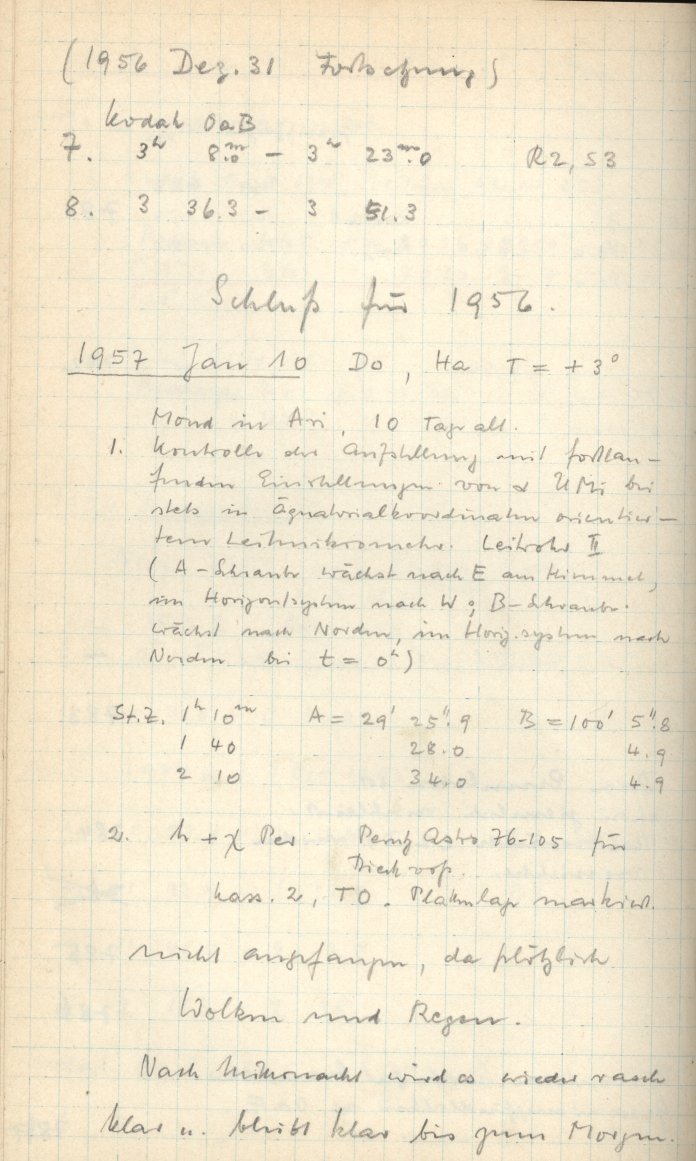 (1956 Dez. 31 Fortsetzung)
Kodak OaB
7. 3ʰ 8ᵐ.0 – 3ʰ 23ᵐ.0 R2, S3
8. 3 36.3 – 3 51.3
Schluß für 1956.
1957 Jan 10 Do, Ha T = +3°
Mond in Ari, 10 Tage alt.
1. Kontrolle der Aufstellung mit fortlau-
fenden Einstellungen von α UMi bei
stets in Äquatorialkoordinaten orientier-
tem Leitmikrometer. Leitrohr II
(A-Schraube wächst nach E am Himmel,
im Horizontsystem nach W; B-Schraube
wächst nach Norden, im Horiz.system nach
Norden bei t = 0ʰ)
St.Z. 1ʰ 10ᵐ A = 29' 25".9 B = 100' 5".8
1 40 28.0 4.9
2 10 34.0 4.9
2. h + χ Per Perutz Astro 76-105 für
Dieckvoß.
Kass. 2, TO. Plattenlage markiert.
nicht angefangen, da plötzlich
Wolken und Regen.
Nach Mitternacht wird es wieder rasch
klar u. bleibt klar bis zum Morgen.